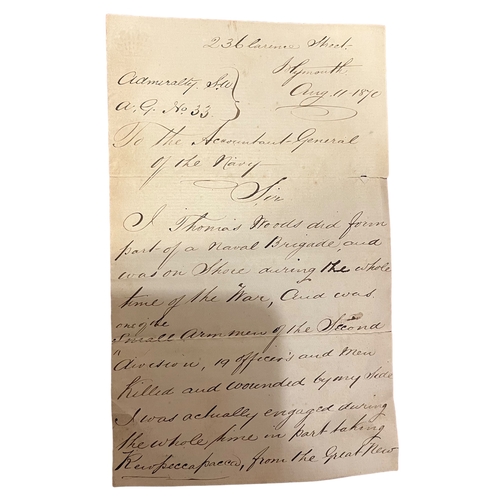 23 Clarence Street.
Plymouth.
Aug 11 1870
Admiralty S.W
A.G. No 33
To the Accountant General
of the Navy
Sir
I Thomas Woods did form
part of a Naval Brigade, and
was on Shore during the whole
time of the War, And was
one of the
Small Arm men of the Second
Division, 19 officers and Men
Killed and wounded by my side
I was actually engaged during
the whole time in part taking
from the Great New